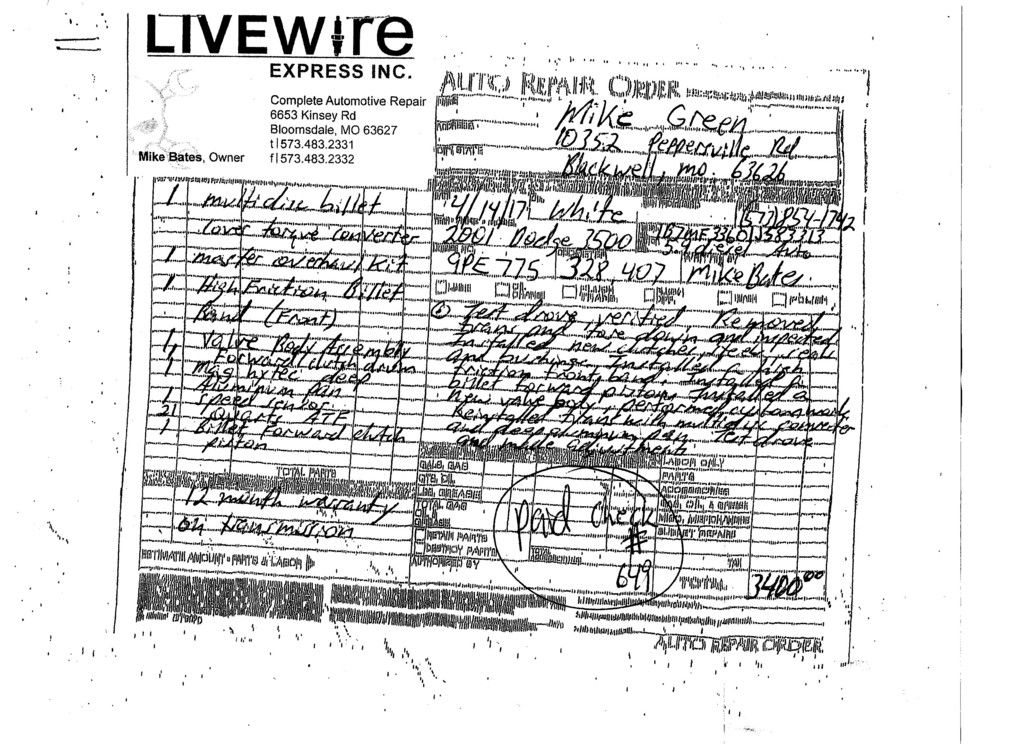 LIVEWIre
EXPRESS INC.
Complete Automotive Repair
6653 Kinsey Rd
Bloomsdale, MO 63627
t | 573.483.2331
Mike Bates, Owner f | 573.483.2332
AUTO REPAIR ORDER
Mike Green
10352 Peppersville Rd
Blackwell, mo. 63626
4/14/17 White
2001 Dodge 3500
diesel Auto
9PE 775 328,407 Mike Bates
1 multidisc billet
cover torque converter
1 master overhaul Kit
1 High Friction Billet
Band (Front)
1 Valve Body Assembly
1 Forward clutch drum
1 mag hytec deep
Aluminum Pan
1 speed sensor
21 Quarts ATF
1 Billet Forward clutch
piston
TOTAL PARTS
Test drove, verified, Removed
trans and tore down and inspected
installed new clutches, seals
and bushings installed a high
friction front band, installed a
billet forward piston, installed a
new valve body, performed
Reinstalled trans with multidisc converter
and deep aluminum pan Test drove
and made adjustments
12 month warranty
on transmission
ESTIMATE AMOUNT - PARTS & LABOR
GALS. GAS
QTS. OIL
LBS. GREASE
TOTAL GAS
OIL &
GREASE
RETAIN PARTS
DESTROY PARTS
AUTHORIZED BY
paid check
#
649
LABOR ONLY
PARTS
ACCESSORIES
GAS, OIL & GREASE
MISC. MERCHANDISE
SUBLET REPAIRS
TAX
TOTAL 3400.00
AUTO REPAIR ORDER